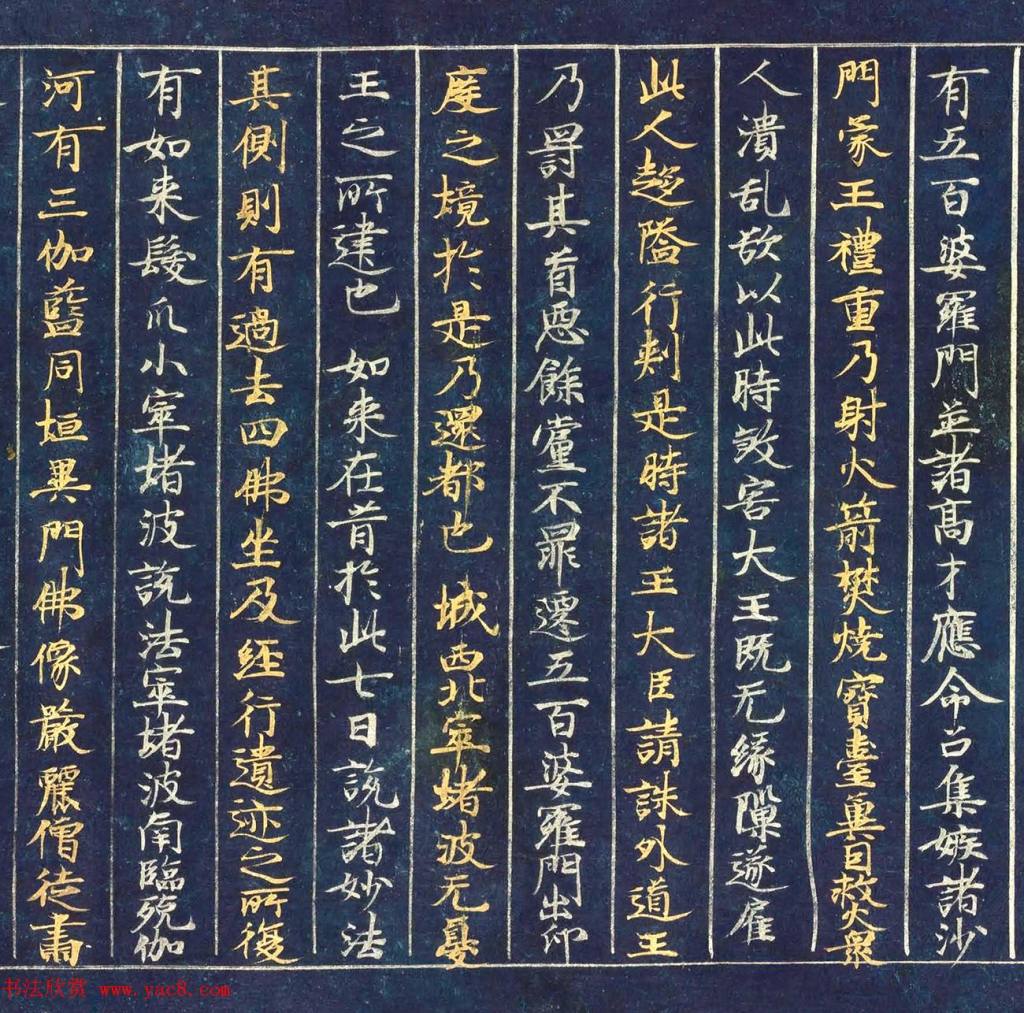 有五百婆羅門並諸高才應命召集嫉諸沙
門蒙王禮重乃射火箭焚燒寶臺冀因救火衆
人潰乱欲以此時敓害大王既无緣隟遂雇
此人趍隘行刺是時諸王大臣請誅外道王
乃罸其首惡餘黨不罪遷五百婆羅門出印
度之境於是乃還都也 城西北窣堵波无憂
王之所建也 如来在昔於此七日說諸妙法
其側則有過去四佛坐及經行遺迹之所復
有如来髮爪小窣堵波說法窣堵波南臨殑伽
河有三伽藍同垣異門佛像嚴麗僧徒肅
书法欣赏 www.yac8.com